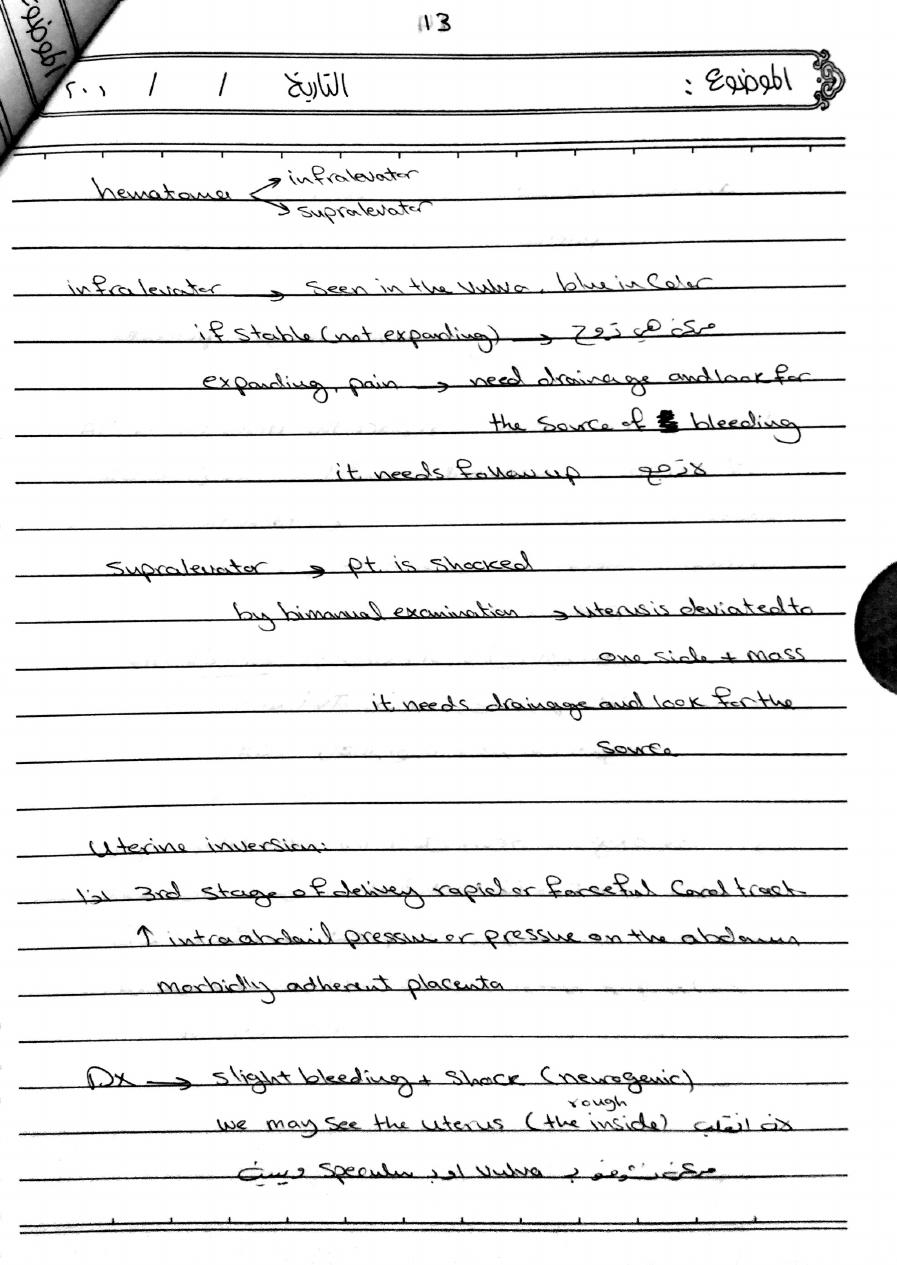 13
الموضوع : التاريخ / / ٢٠٠١
hematoma → infralevator
→ supralevator
infralevator → seen in the vulva, blue in color
if stable (not expanding) → ممكن تروح
expanding, pain → need drainage and look for
the source of bleeding
it needs follow up لازم
supralevator → pt. is shocked
by bimanual examination → uterus is deviated to
one side + mass
it needs drainage and look for the
source
Uterine inversion:
اذا 3rd stage of delivey rapid or forceful cord track
↑ intraabdail pressure or pressue on the abdomen
morbidly adherent placenta
Dx → slight bleeding + shock (neurogenic)
rough
we may see the uterus (the inside) انقلب
ممكن نشوفو ب vulva او ب speculum